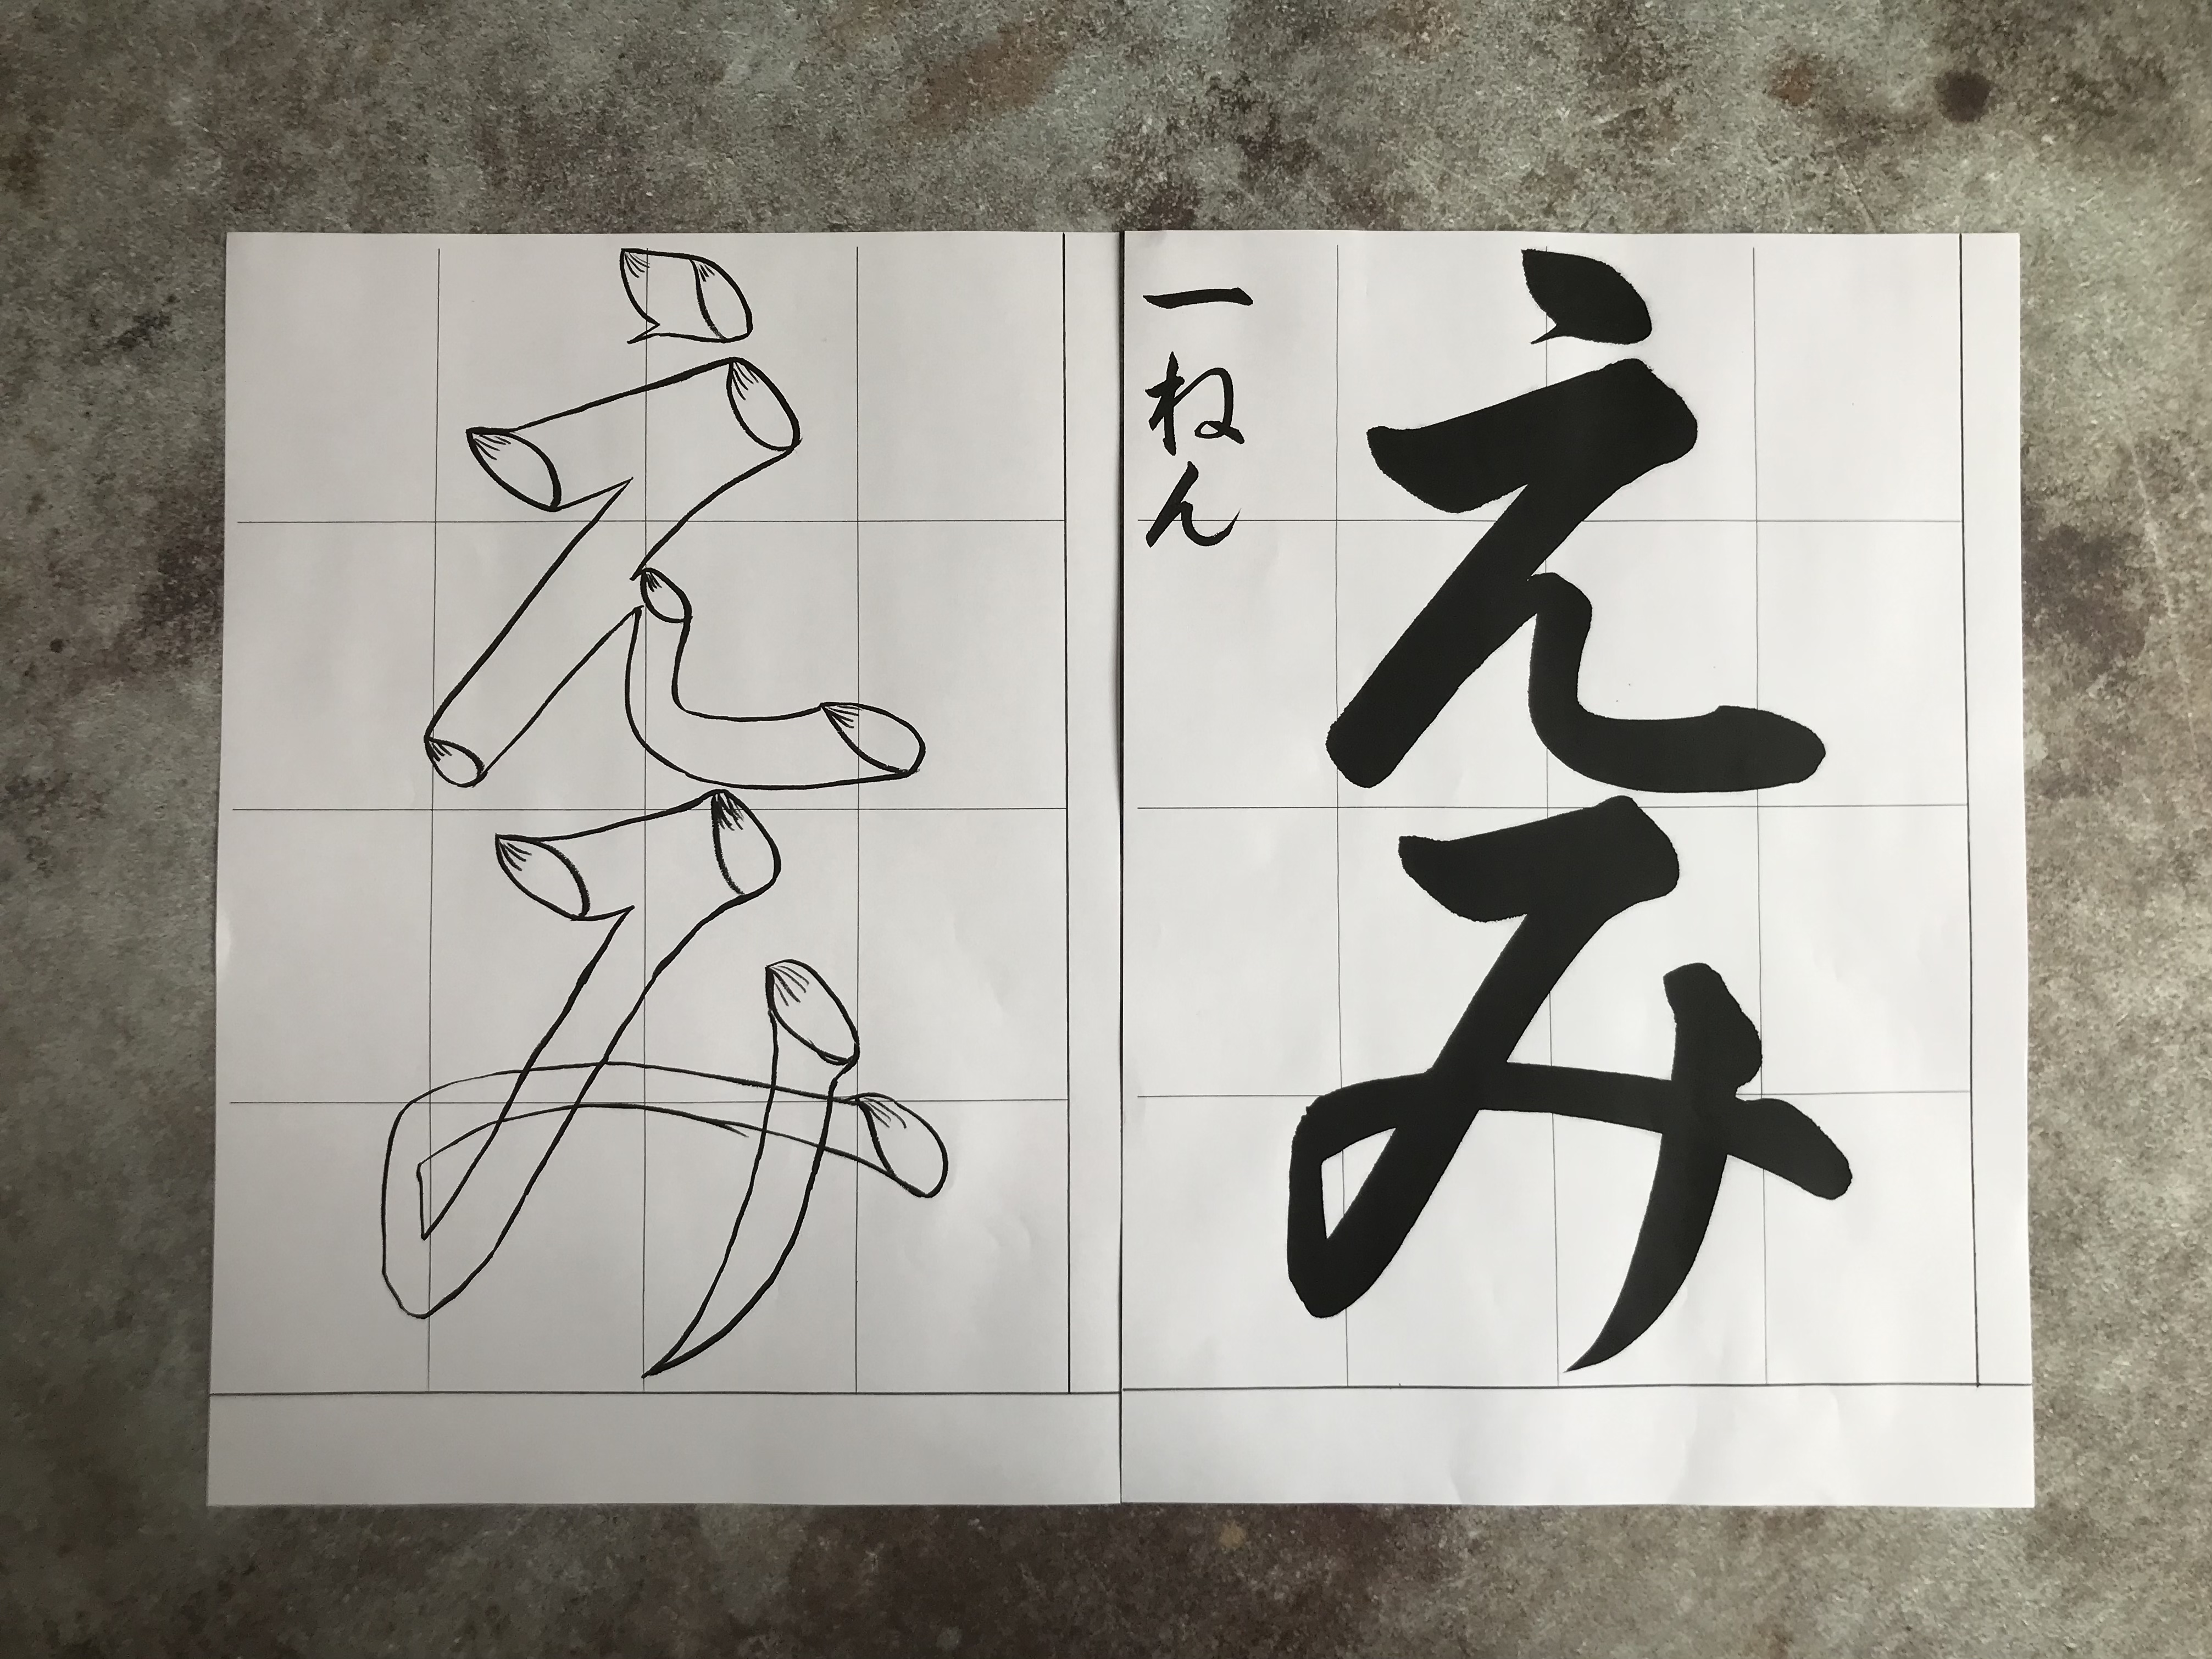 えみ
えみ
一ねん